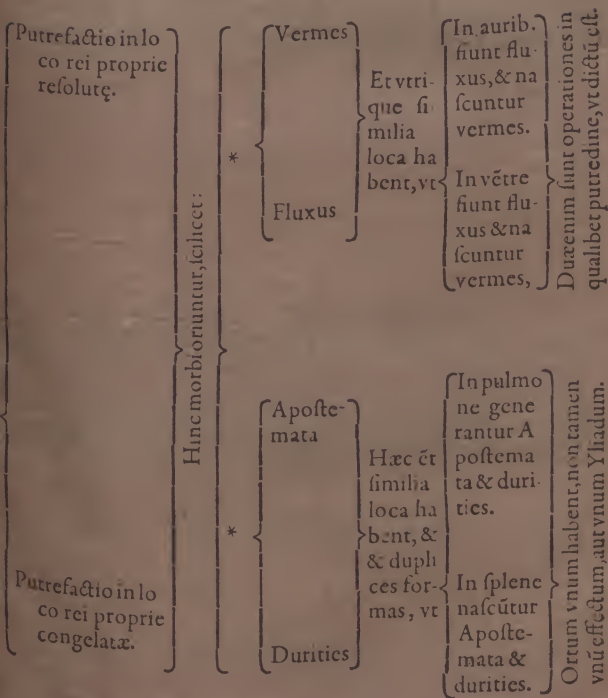 Putrefactio in lo
co rei proprie
reſolutę.
Putrefactio in lo
co rei proprie
congelatæ.
Hinc morbi oriuntur, ſcilicet:
*
Vermes
Fluxus
Et vtri-
que ſi
milia
loca ha
bent, vt
In aurib.
fiunt flu-
xus, & na
ſcuntur
vermes.
In vētre
fiunt flu-
xus & na
ſcuntur
vermes,
Duæ enim ſunt operationes in
qualibet putredine, vt dictū eſt.
*
Apoſte-
mata
Durities
Hæc ēt
ſimilia
loca ha
bent, &
& dupli
ces for-
mas, vt
In pulmo
ne gene
rantur A
poſtema
ta & duri-
ties.
In ſplene
naſcūtur
Apoſte-
mata &
durities.
Ortum vnum habent, non tamen
vnū effectum, aut vnum Yliadum.